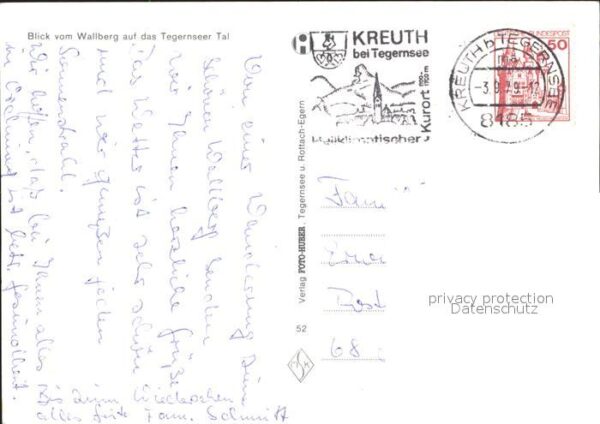 Blick vom Wallberg auf das Tegernseer Tal
Von einer Wanderung zum
schönen Wallberg senden
wir Ihnen herzliche Grüße
Das Wetter ist sehr schön
und wir genießen jeden
Sonnenstrahl.
Wir hoffen, daß bei Ihnen alles
in Ordnung ist
Bis zum Wiedersehen
alles Gute Fam. Schmitt
Verlag FOTO-HUBER, Tegernsee u. Rottach-Egern
52
KREUTH
bei Tegernsee
Heilklimatischer
Kurort
KREUTH b TEGERNSEE
8185
DEUTSCHE BUNDESPOST
50
Familie
Post
68
privacy protection
Datenschutz